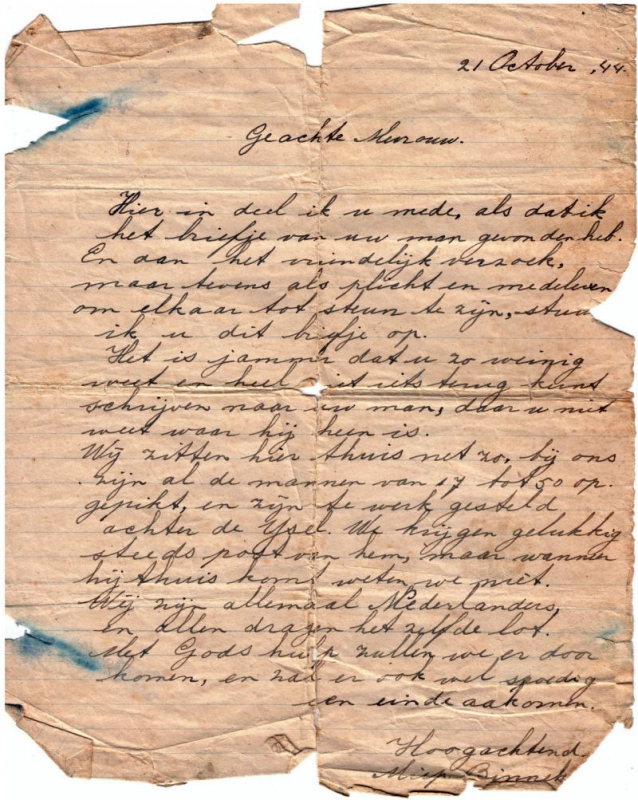 21 October, 44.
Geachte Mevrouw.
Hier in deel ik u mede, als dat ik
het briefje van uw man gevonden heb.
En aan het vriendelijk verzoek,
maar tevens als plicht en medeleven
om elkaar tot steun te zijn, stuu
ik u dit briefje op.
Het is jammer dat u zo weinig
weet en heel iets terug kunt
schrijven naar uw man, daar u niet
weet waar hij heen is.
Wij zitten hier thuis net zo, bij ons
zijn al de mannen van 17 tot 50 op.
gepikt, en zijn te werk gesteld
achter de Ysel. We krijgen gelukkig
steeds post van hem, maar wanneer
hij thuis komt weten we niet.
Wij zijn allemaal Nederlanders,
en allen dragen het zelfde lot.
Met Gods hulp zullen we er door
komen, en zal er ook wel spoedig
een einde aakomen.
Hoogachtend.
Miep